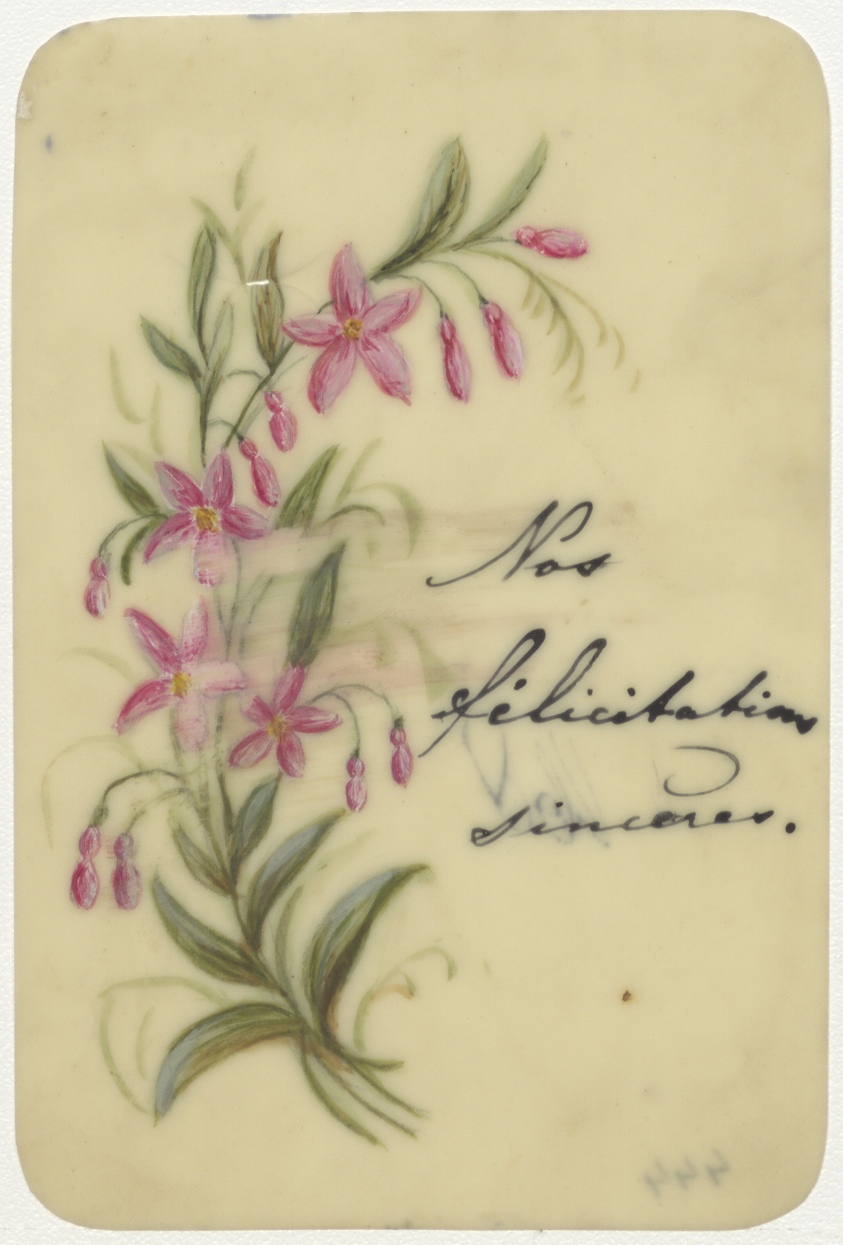 Nos
félicitations
sincères.
444